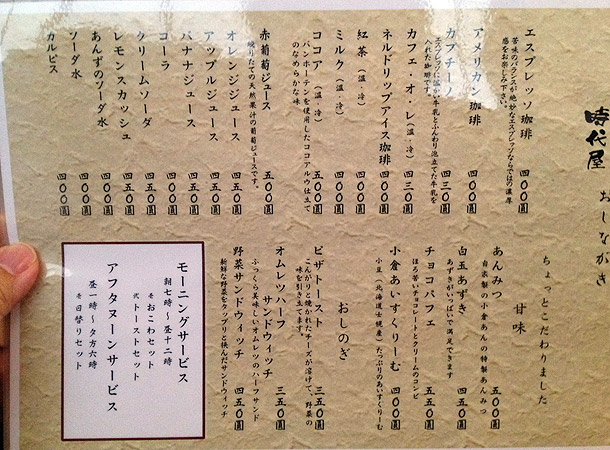 時代屋 おしながき
エスプレッソ珈琲 四〇〇圓
苦味のバランスが絶妙なエスプレッソならではの濃厚
感をお楽しみ下さい。
アメリカン珈琲 四〇〇圓
カプチーノ 四三〇圓
エスプレッソに温かい牛乳とふんわり泡立てた牛乳を
入れた珈琲です。
カフェ・オ・レ（温・冷） 四三〇圓
ネルドリップアイス珈琲 四〇〇圓
紅茶（温・冷） 四〇〇圓
ミルク（温・冷） 四〇〇圓
ココア（温・冷） 五〇〇圓
バンホーテンを使用したココアルウ仕立て
のなめらかな味
赤葡萄ジュース 五〇〇圓
搾りたての天然果汁の葡萄ジュースです。
オレンジジュース 四五〇圓
アップルジュース 四五〇圓
バナナジュース 四五〇圓
コーラ 四〇〇圓
クリームソーダ 五〇〇圓
レモンスカッシュ 四五〇圓
あんずのソーダ水
ソーダ水 四〇〇圓
カルピス 四〇〇圓
ちょっとこだわりました
甘味
あんみつ 五〇〇圓
自家製の小倉あんの特製あんみつ
白玉あずき 四五〇圓
あずきがいっぱいで満足できます
チョコパフェ 五五〇圓
ほろ苦いチョコレートとクリームのコンビ
小倉あいすくりーむ 四〇〇圓
小豆（北海道士幌産）たっぷりのあいすくりーむ
おしのぎ
ピザトースト 三五〇圓
こんがりと焼かれたチーズが溶けて、野菜の
味を引き立てます。
オムレツハーフ
サンドウィッチ 三五〇圓
ふっくら美味しいオムレツのハーフサンド
野菜サンドウィッチ 四五〇圓
新鮮な野菜をタップリと挟んだサンドウィッチ
モーニングサービス
朝七時〜昼十二時
壱 おこわセット
弐 トーストセット
アフタヌーンサービス
昼一時〜夕方六時
壱 日替りセット